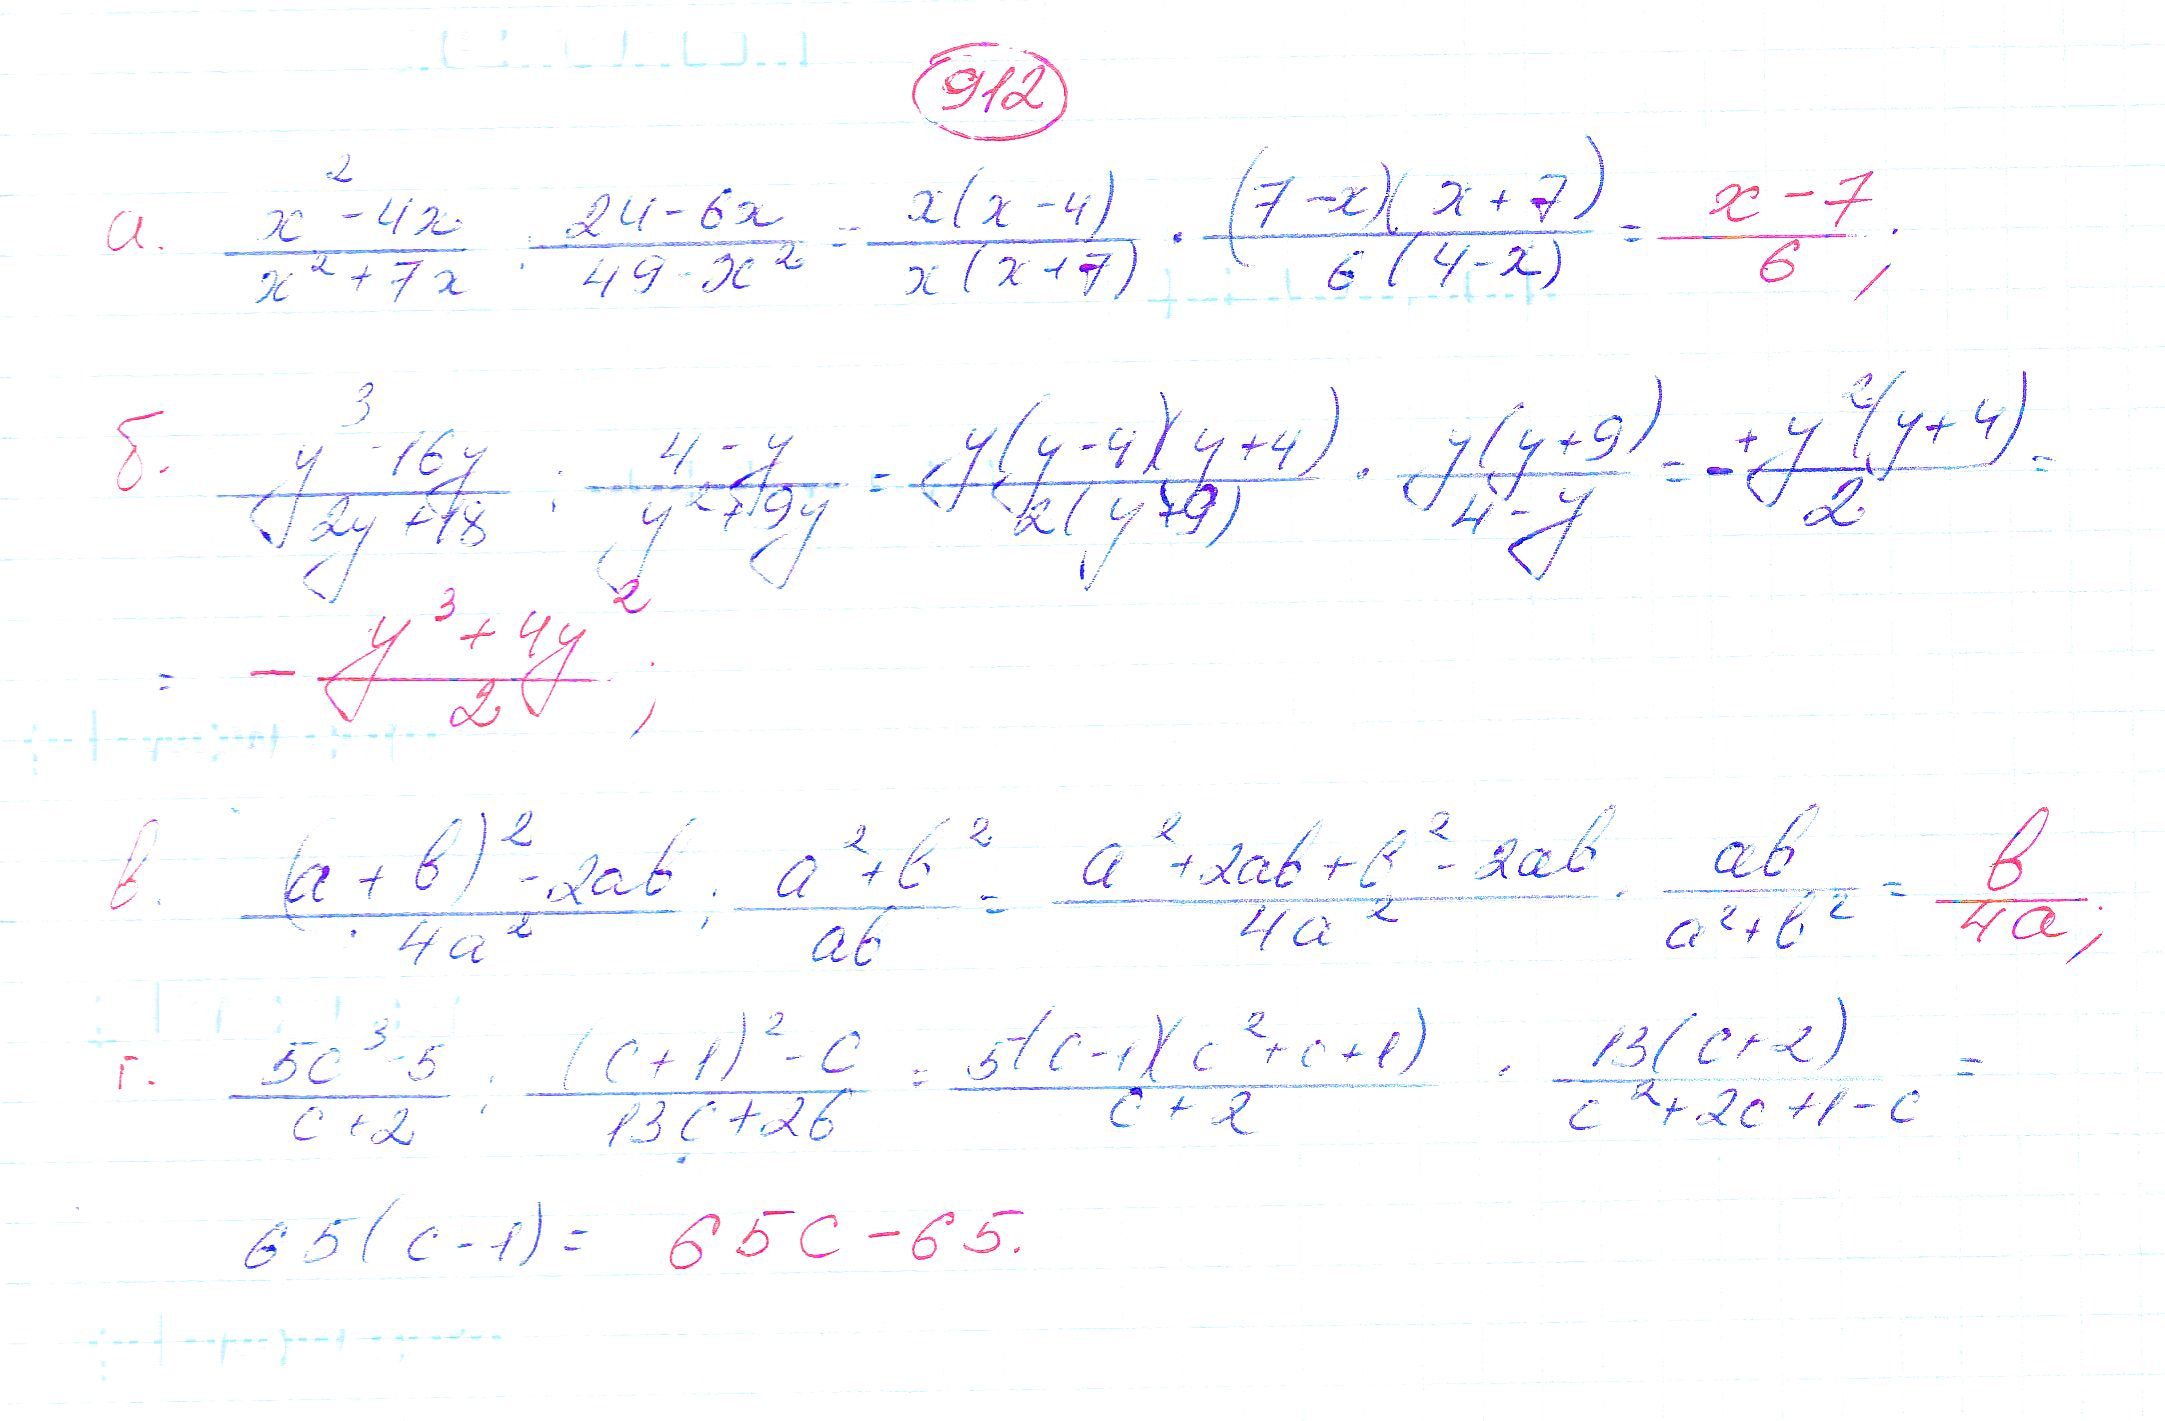 912
а. (x² - 4x)/(x² + 7x) : (24 - 6x)/(49 - x²) = x(x - 4)/x(x + 7) · (7 - x)(x + 7)/6(4 - x) = (x - 7)/6;
б. (y³ - 16y)/(2y + 18) : (4 - y)/(y² + 9y) = y(y - 4)(y + 4)/2(y + 9) · y(y + 9)/(4 - y) = - y²(y + 4)/2 =
= - (y³ + 4y²)/2;
в. ((a + b)² - 2ab)/4a² : (a² + b²)/ab = (a² + 2ab + b² - 2ab)/4a² · ab/(a² + b²) = b/4a;
г. (5c³ - 5)/(c + 2) : ((c + 1)² - c)/(13c + 26) = 5(c - 1)(c² + c + 1)/(c + 2) · 13(c + 2)/(c² + 2c + 1 - c) =
65(c - 1) = 65c - 65.